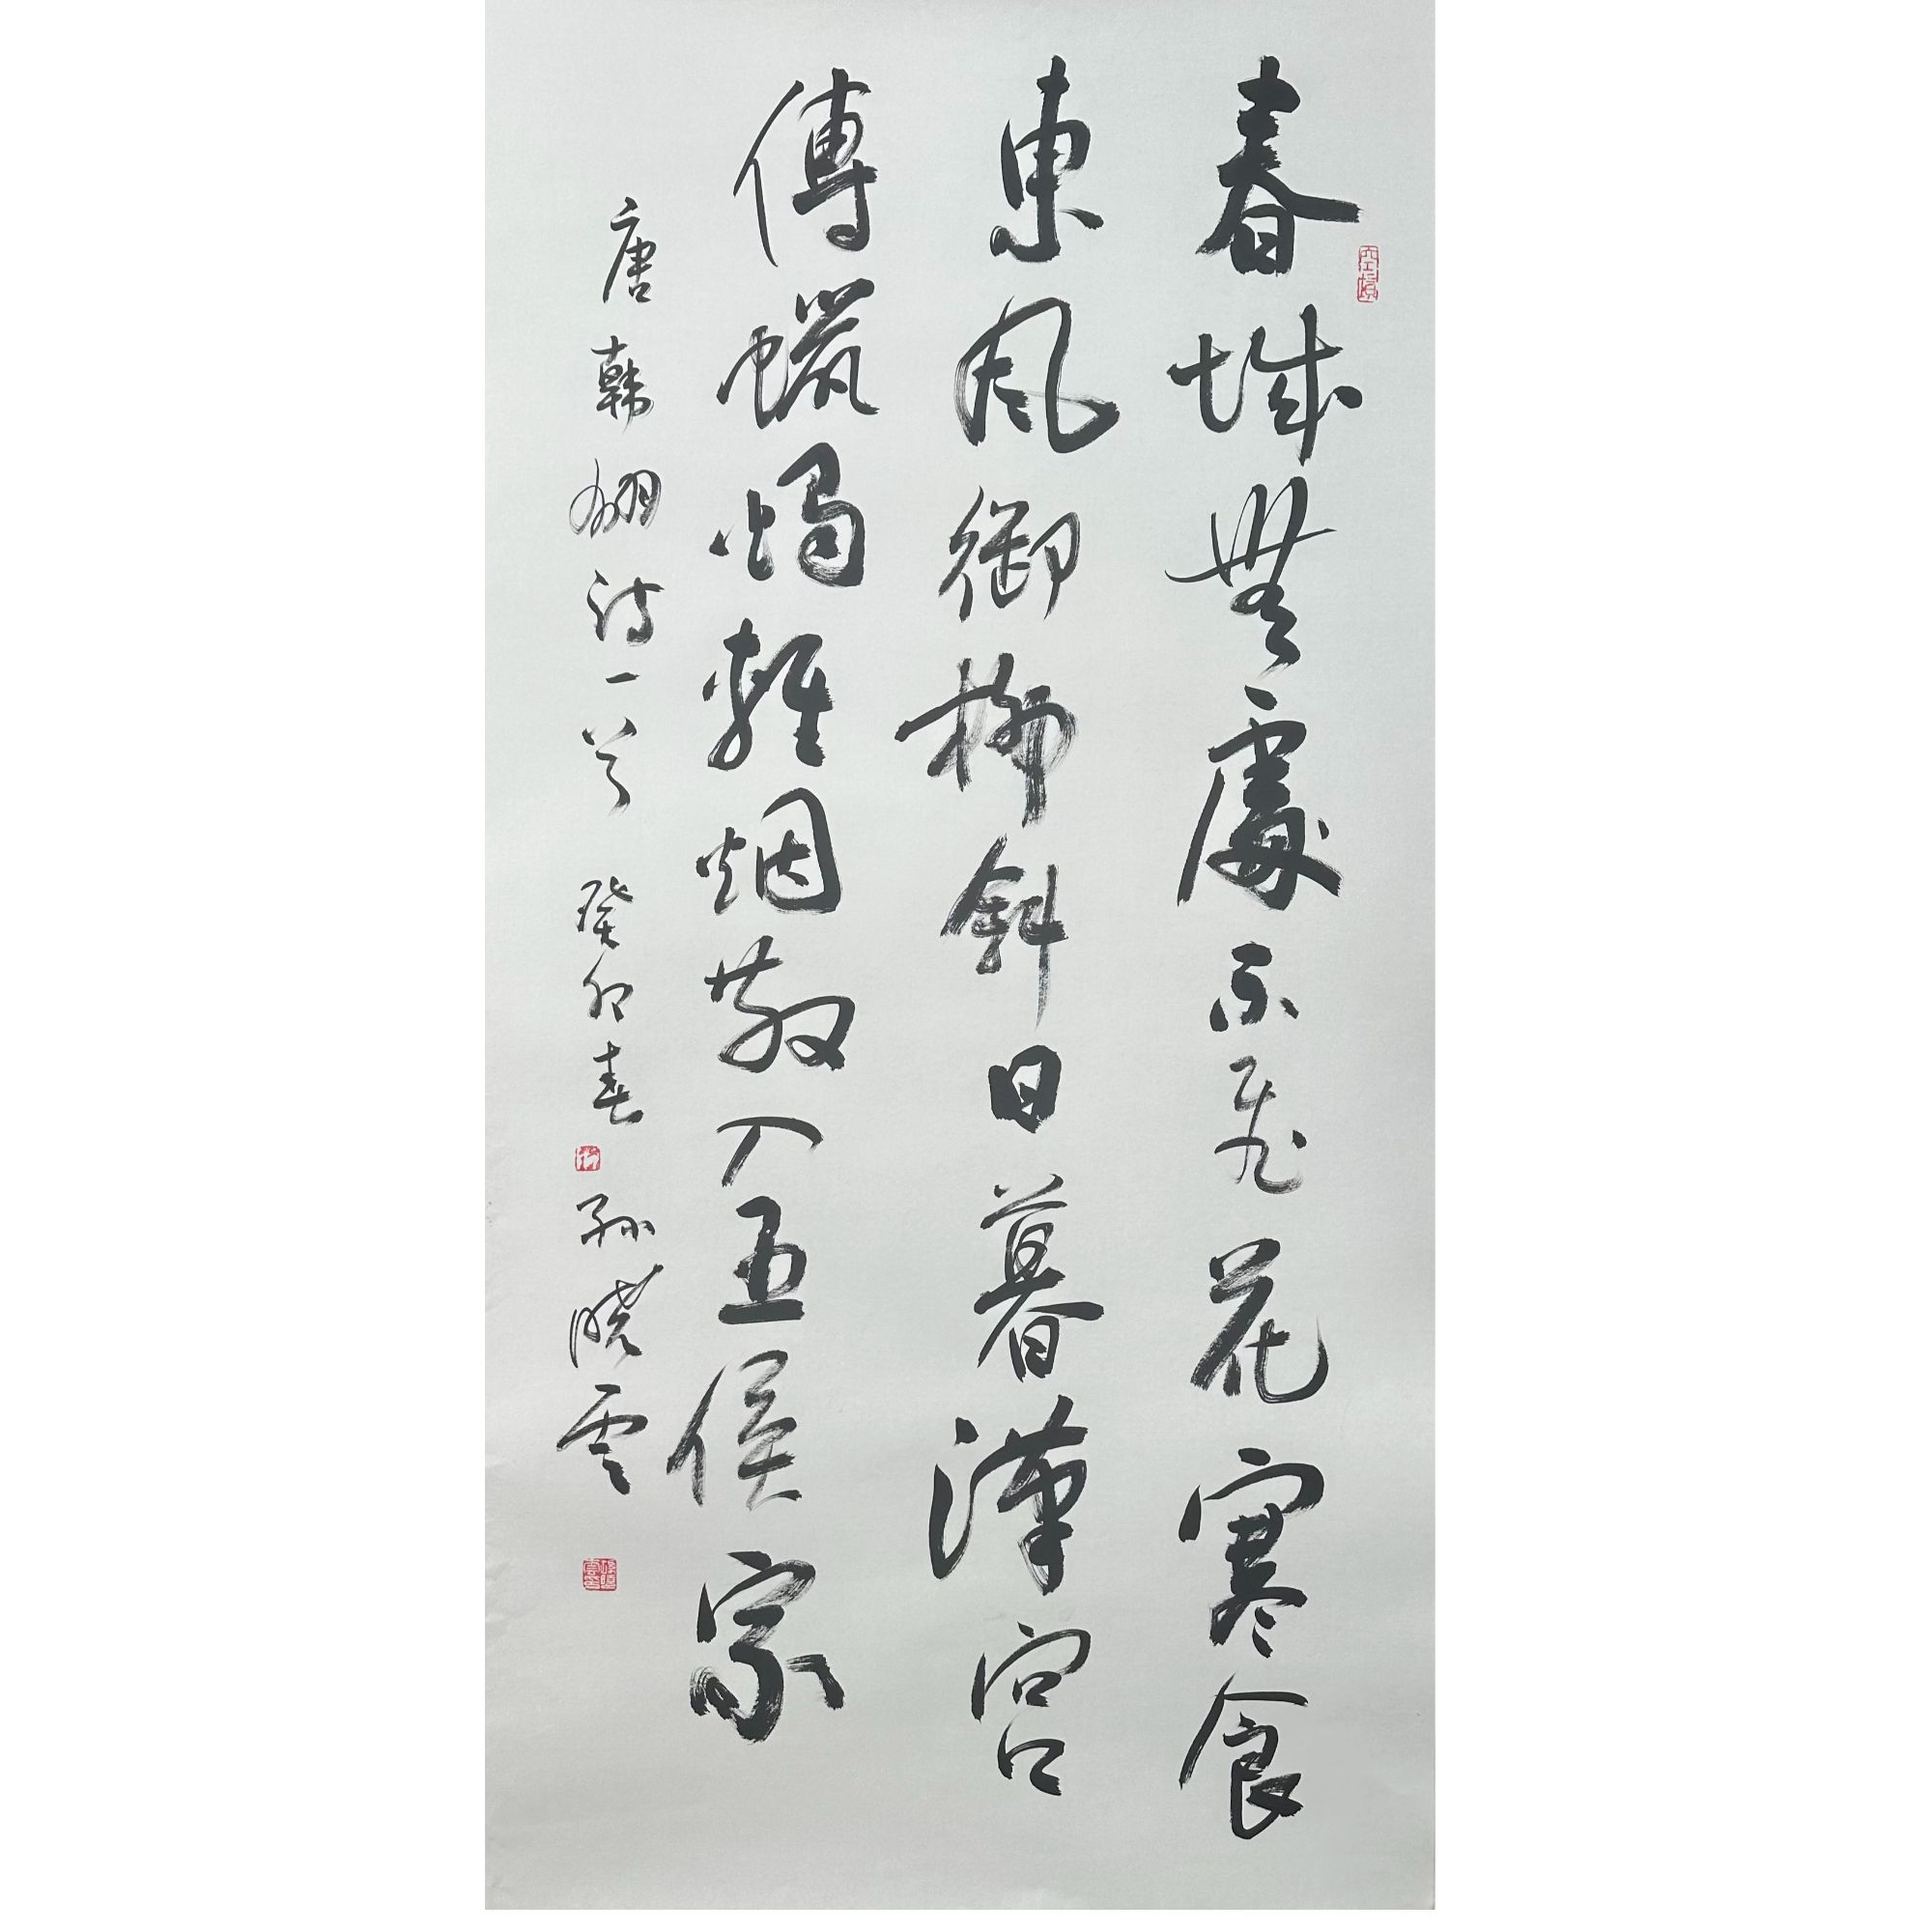 春城無處不飛花寒食
東風御柳斜日暮漢宮
傳蠟燭輕烟散入五侯家
唐韩翃诗一首 癸卯春 孙晓云